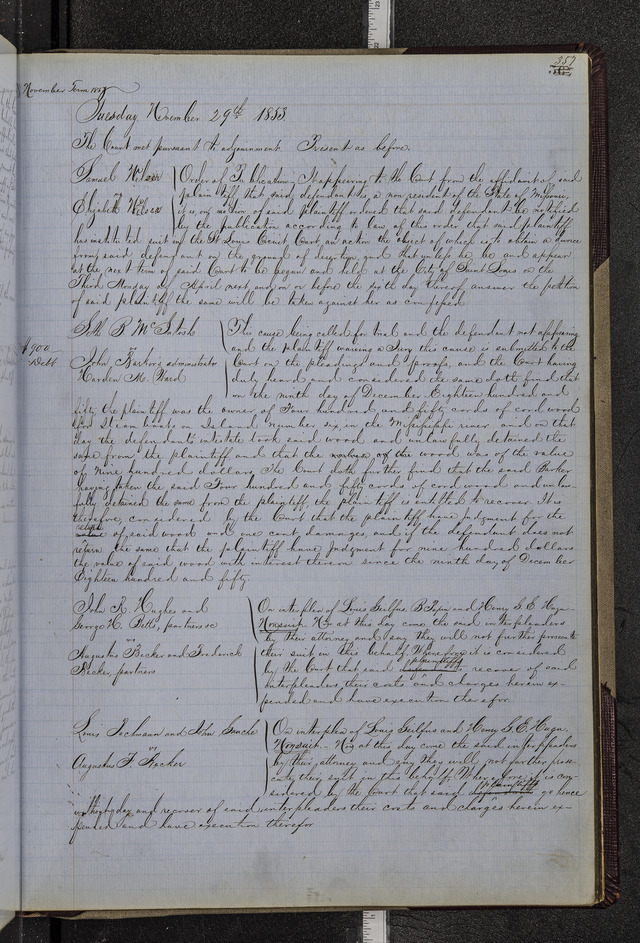 357
November Term 1853
Tuesday November 29th 1853
The Court met pursuant to adjournment Present as before.
Samuel Wilson
vs
Elizabeth Wilson
Order of Publication, It appearing to the Court from the affidavit of said
plaintiff that said defendant is a non resident of the State of Missouri,
it is on motion of said plaintiff ordered that said defendant be notified
by the publication according to law of this order that said plaintiff
has instituted suit in the St Louis Circuit Court, an action the object of which is to obtain a divorce
from said defendant on the ground of desertion, and that unless he be and appear
at the next term of said Court to be begun and held at the City of Saint Louis on the
Third Monday of April next, and on or before the sixth day thereof answer the petition
of said plaintiff the same will be taken against her as confessed
$900
Debt
Seth P McIntosh
vs
John Barker, administrator
Harden M. Ward
This cause being called for trial and the defendant not appearing
and the plaintiff waiving a Jury this cause is submitted to the
Court on the pleadings and proofs, and the Court having
duly heard and considered the same doth find that
on the ninth day of December Eighteen hundred and
fifty the plaintiff was the owner of Four hundred and fifty cords of cord wood
for Steam boats on Island Number six in the Mississippi river and on that
day the defendants intestate took said wood and unlawfully detained the
same from the plaintiff and that the wood was of the value
of Nine hundred dollars, The Court doth further find that the said Barker
having taken the said Four hundred and fifty cords of cord wood and unlaw-
fully detained the same from the plaintiff, the plaintiff is entitled to recover It is
therefore, considered by the Court that the plaintiff have Judgment for the
return of said wood and one cent damages, and if the defendant does not
return the same that the plaintiff have Judgment for nine hundred dollars
the value of said wood with interest thereon since the ninth day of December
Eighteen hundred and fifty
John R. Hughes and
George H. partners &c
vs
Augustus Becker and Frederick
Becker, partners
On interplea of Louis B and Henry G. E.
Nonsuit. Now at this day come the said interpleaders
by their attorney and say they will not further prosecute
their suit in this behalf, Wherefore it is considered
by the Court that said plaintiffs recover of said
interpleaders their costs and charges herein ex-
pended and have execution therefor
Louis and John
vs
Augustus F. Becker
On interplea of Louis and Henry G. E.
Nonsuit. Now at this day come the said interpleaders
by their attorney and say they will not further pros-
ecute their suit in this behalf, Wherefore it is con-
sidered by the Court that said plaintiffs go hence
without day and recover of said interpleaders their costs and charges herein ex-
pended and have execution therefor